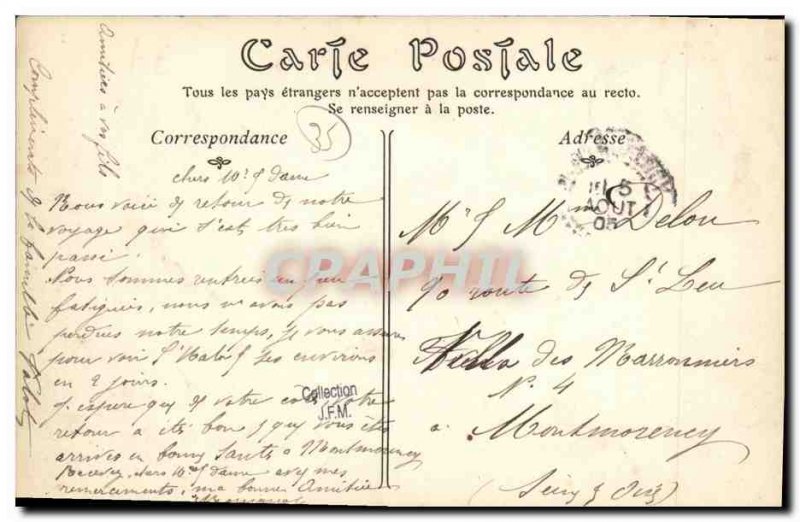 Carte Postale
Tous les pays étrangers n'acceptent pas la correspondance au recto.
Se renseigner à la poste.
Correspondance
35
Adresse
chers Mr & Dame
Nous voici de retour de notre
voyage qui s'est très bien
passé
Nous sommes rentrés un peu
fatigués, nous n'avons pas
perdues notre temps, je vous assure
pour voir St Malo & ses environs
en 2 jours.
J'espère que de votre coté votre
retour a été bon & que vous êtes
arrivés en bonne Santé a Montmorency
Recevez, chers Mr & Dame avec mes
remerciements, ma bonne Amitiée
Amitiées à vos fils
Compliments de la famille
5
AOUT
05
Mr & Mme Delou
90 route de St Leu
Villa des Marronniers
No 4
a Montmorency
(Seine & Oise)
CPAPHIL
Collection
J.F.M.